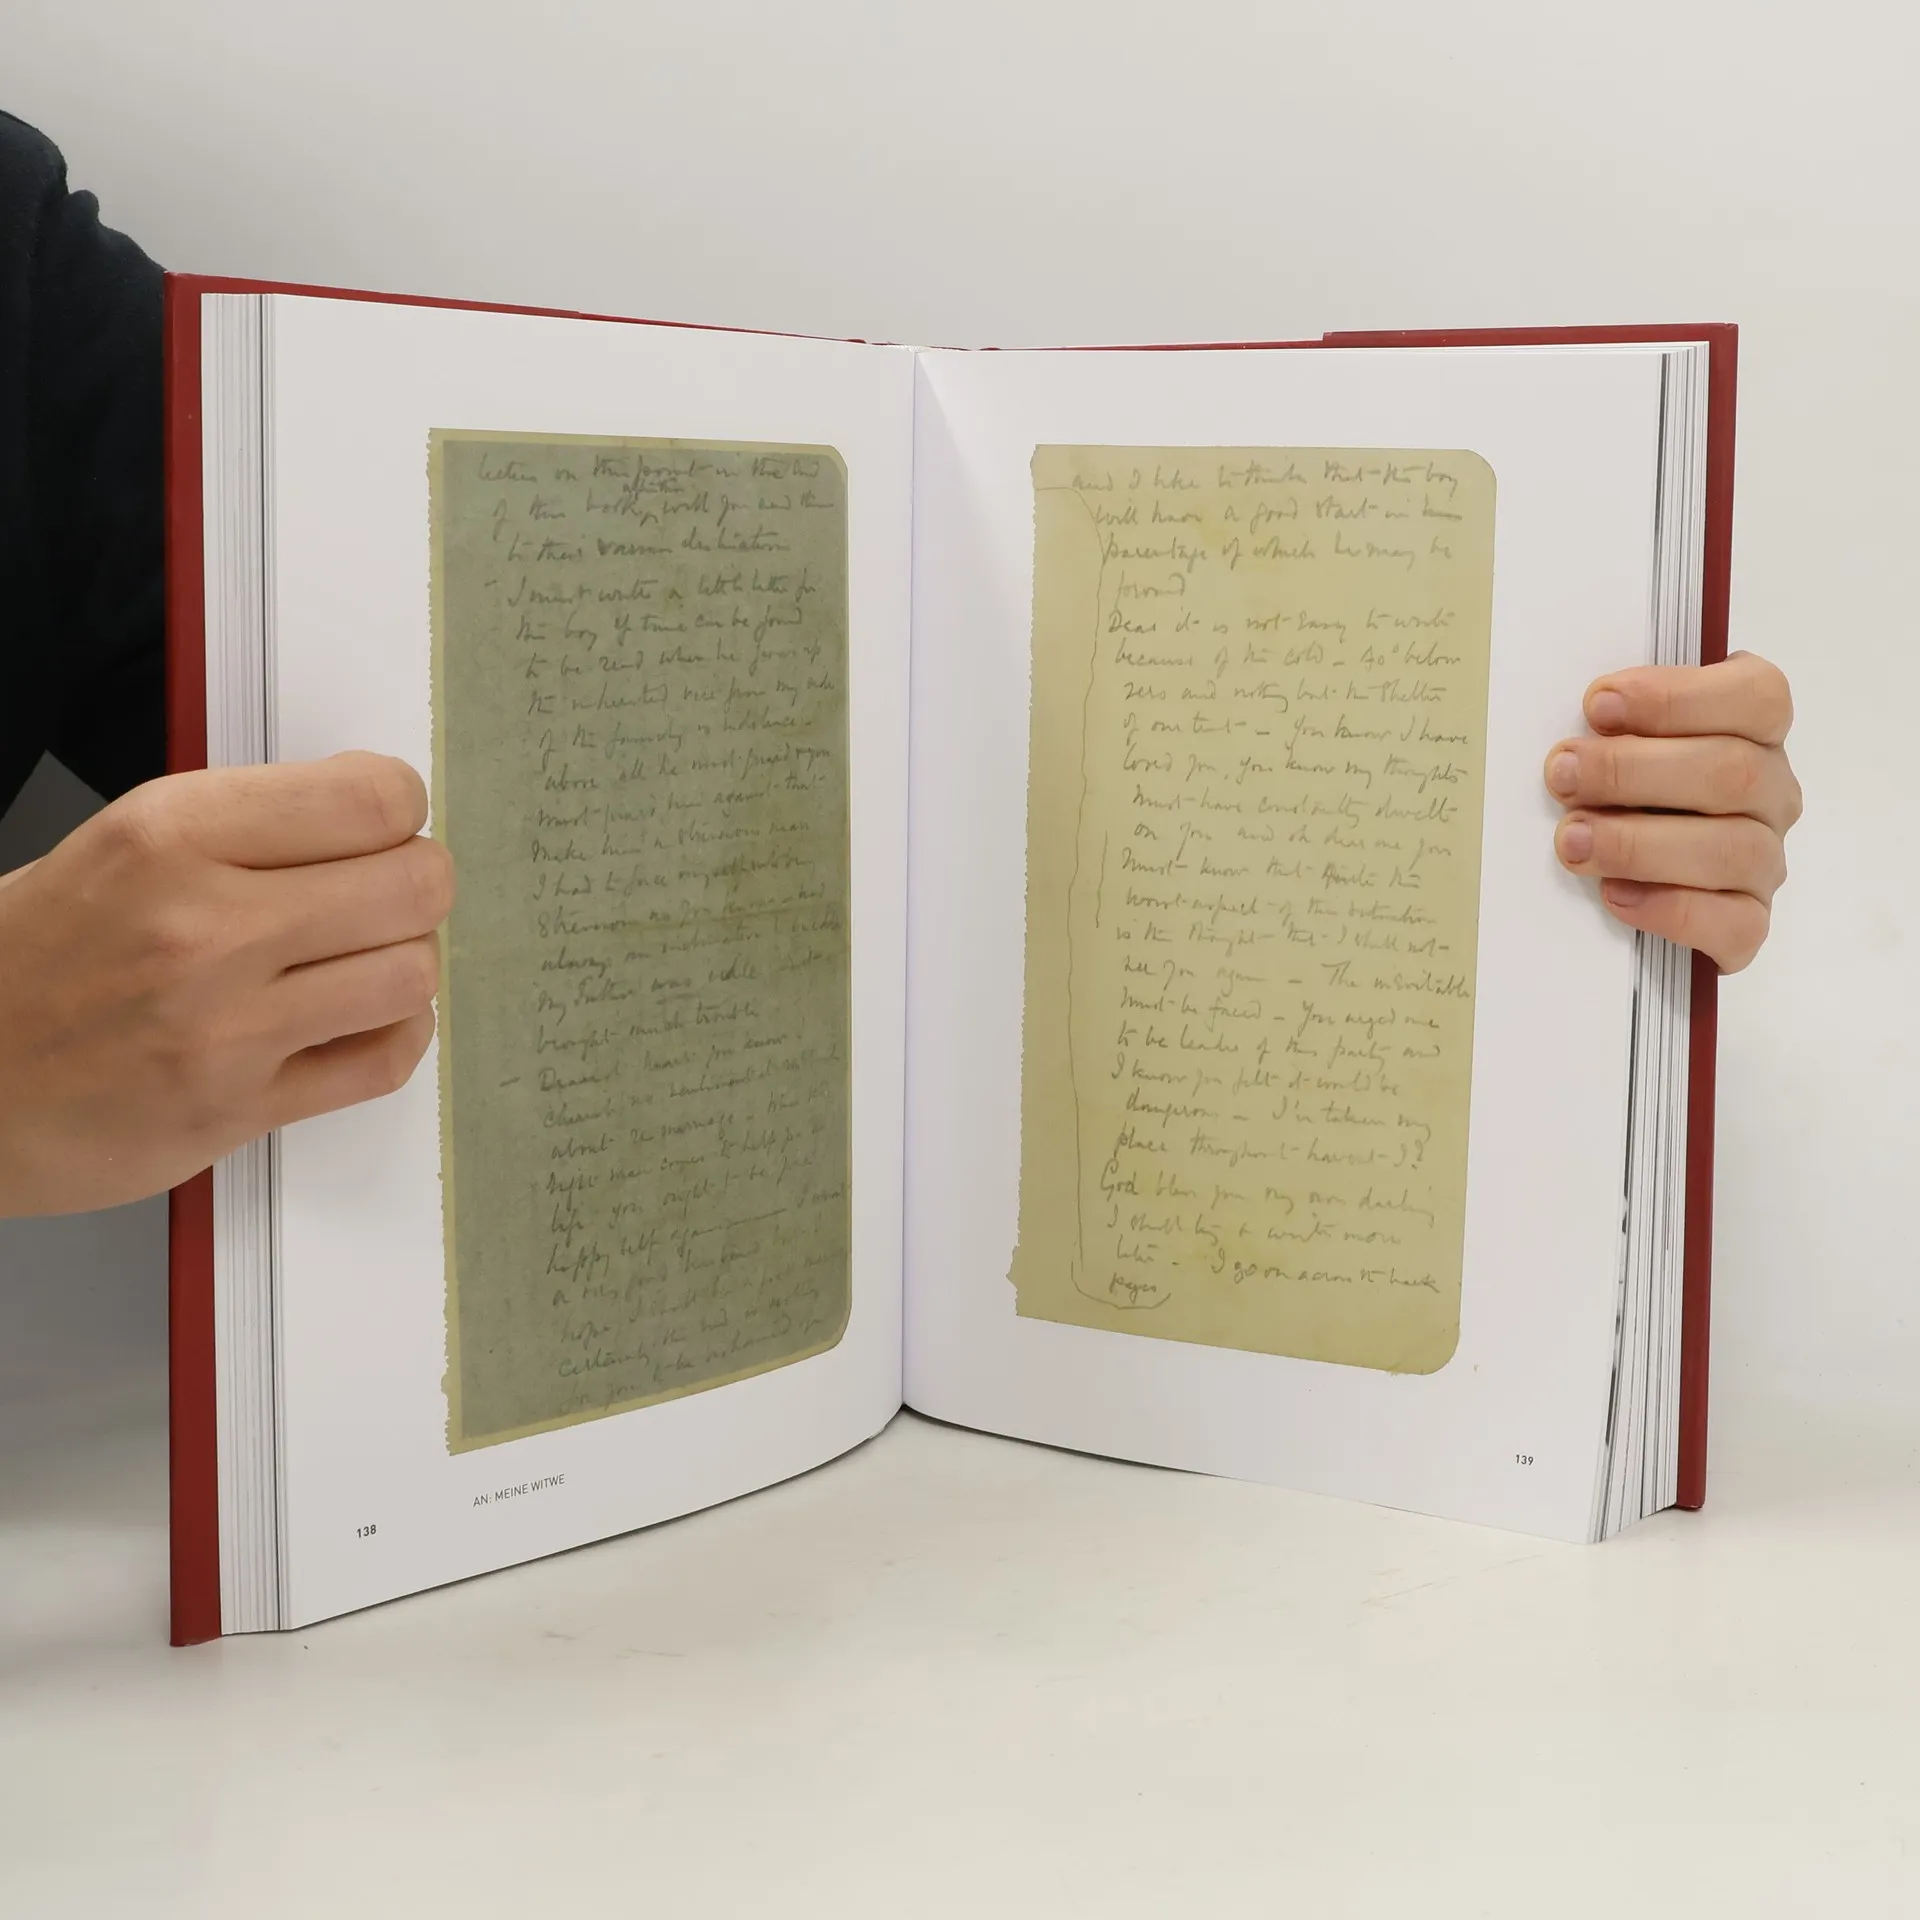 letters on this point in the end
of this book, will you send them
to their various destinations
- I must write a little letter for
the boy if time can be found
to be read when he grows up
the inherited vice from my side
of the family is indolence -
above all he must guard & you
must guard him against that
Make him a strenuous man
I had to force myself into being
strenuous as you know - had
always an inclination to be idle
My Father was idle and it
brought much trouble
- Dearest Heart you know I
cherish no sentimental rubbish
about re marriage - When the
right man comes to help you in
life you ought to be your
happy self again - I wasnt
a very good husband but I
hope I shall be a good memory
certainly the end is nothing
for you to be ashamed of
AN: MEINE WITWE
138
and I like to think that the boy
will have a good start in
parentage of which he may be
proud
Dear it is not Easy to write
because of the cold - 40° below
zero and nothing but the Shelter
of our tent - You know I have
loved you, you know my thoughts
must have constantly dwelt
on you and oh dear me you
must know that Quite the
worst aspect of this situation
is the thought that I shall not
see you again - The inevitable
must be faced - You urged me
to be leader of this party and
I know you felt it would be
dangerous - I've taken my
place throughout havent I?
God bless you my own darling
I shall try & write more
later - I go on across the back
pages
139